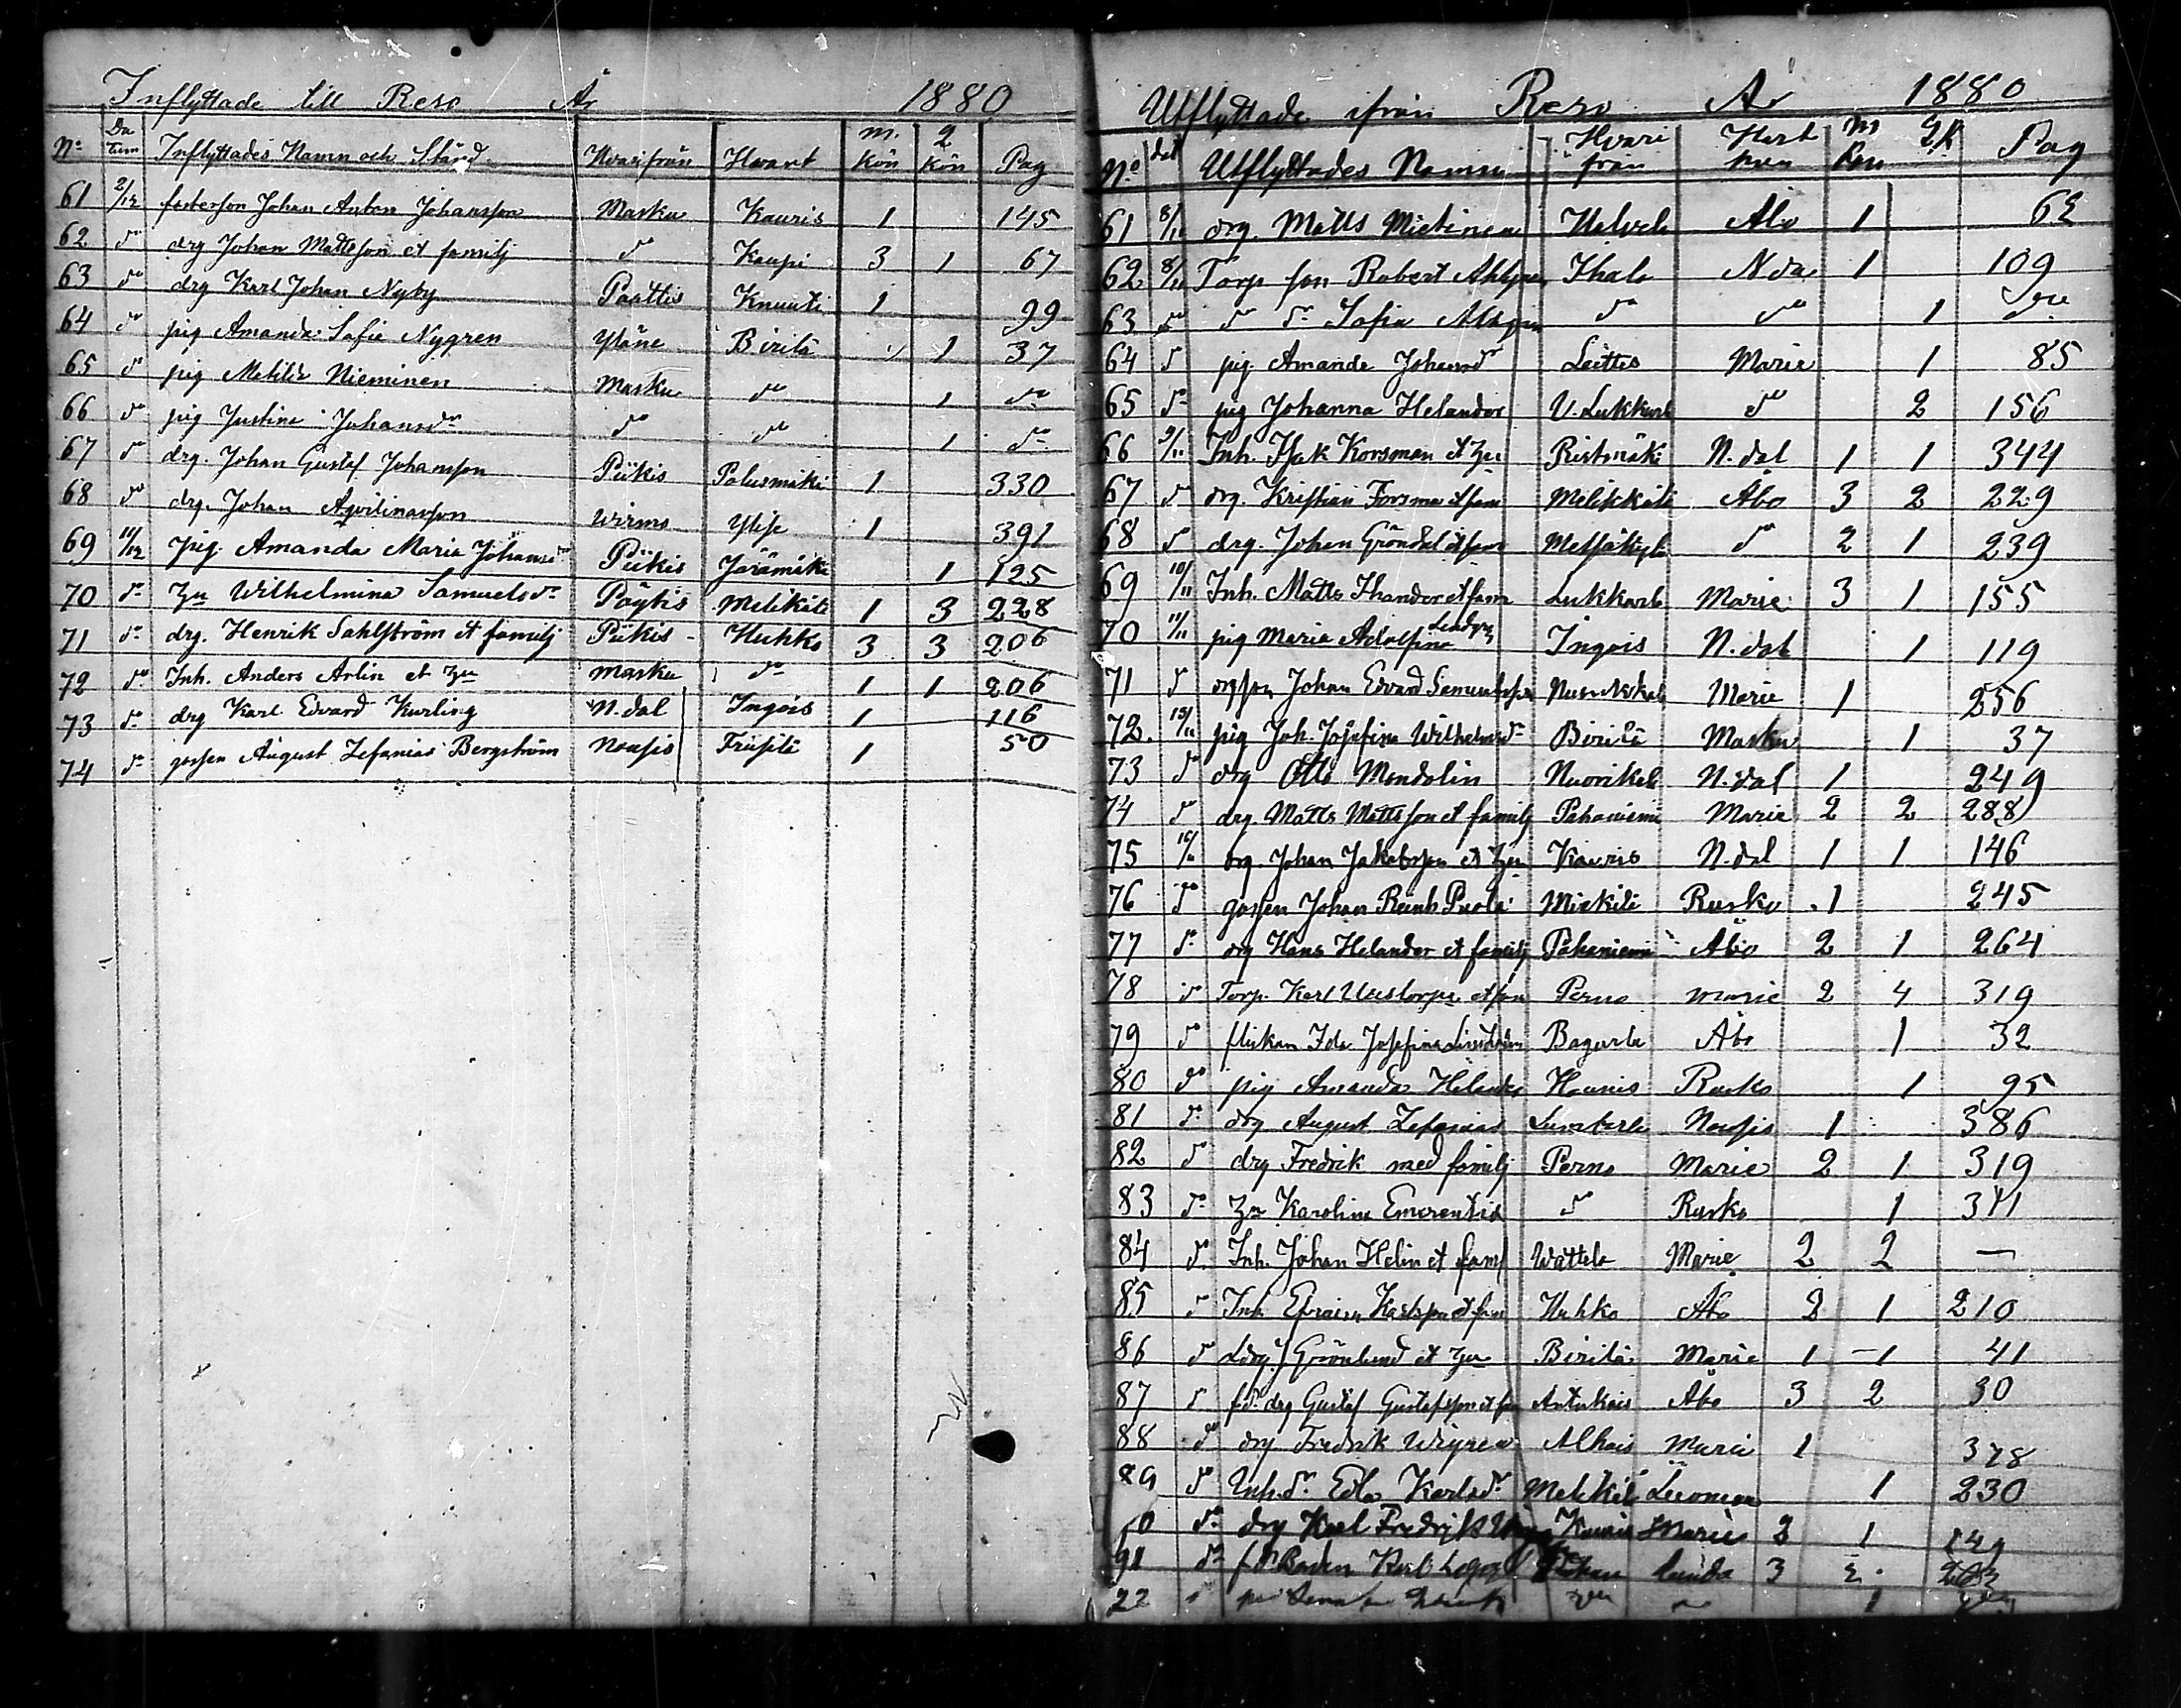 Inflyttade till Reso År 1880
No Datum Inflyttades Namn och Stånd Hvarifrån Hvart m. kön q kön Pag
61 2/12 fosterson Johan Anton Johansson Masku Kauris 1 145
62 do drg Johan Mattsson et familj do Kaupi 3 1 67
63 do drg Karl Johan Nyby Paattis Knuuti 1 99
64 do pig Amanda Sofie Nygren Yläne Birilä 1 37
65 do pig Matilda Nieminen Masku do 1 do
66 do pig Justina Johansdr do do 1 do
67 do drg. Johan Gustaf Johansson Piikis Palusmäki 1 330
68 do drg. Johan Aqvilinasson Wirmo Yltje 1 391
69 11/12 pig. Amanda Maria Johansdr Piikis Järämäki 1 125
70 do Hu Wilhelmina Samuelsdr Pöytis Melikäli 1 3 228
71 do drg. Henrik Sahlström et familj Piikis Huhko 3 3 206
72 do Inh. Anders Arlin et Hu Masku do 1 1 206
73 do drg Karl Edvard Kurling N.dal Ingois 1 116
74 do gossen August Zefanias Bergström Nousis Friisilä 1 50
Utflyttade ifrån Reso År 1880
No dat Utflyttades Namn Hvarifrån Hvart m Kön q K Pag
61 8/11 drg. Matts Mietinen Åbo 1 62
62 8/11 Torp son Robert Ihala Nda 1 109
63 do do do Sofia do do 1 do
64 do pig. Amanda Johansdr Leittes Marie 1 85
65 do pig Johanna Helander do 2 156
66 9/11 Inh. Isak Korsman et Hu Ristimäki N.dal 1 1 344
67 do drg. Kristian Forsman et fam Melikkäli Åbo 3 2 229
68 do drg. Johan Gröndal et fam Metsäkylä do 2 1 239
69 10/11 Inh. Matts Ihander et fam Lukkarla Marie 3 1 155
70 11/11 pig Maria Adolfina Lindgren Ingois N.dal 1 119
71 do drgson Johan Edvard Samuelsson Marie 1 256
72. 15/11 pig Joh. Josefina Wilhelmsdr Birilä Masku 1 37
73 do drg Otto Mandolin Nuorikkala N.dal 1 249
74 do drg Matts Mattsson et familj Pahaniemi Marie 2 2 288
75 16/11 drg. Johan Jakobsson et Hu Kauris N.dal 1 1 146
76 do gossen Johan Reinh Puola Rusko 1 245
77 do drg Hans Helander et familj Pahaniemi Åbo 2 1 264
78 do Torp. Karl et fam Perno Marie 2 4 319
79 do flickan Ida Josefina Lindström Bagarla Åbo 1 32
80 do pig Amanda Helander Haunis Rusko 1 95
81 do drg August Zefanias Lumbarla Nousis 1 386
82 do drg Fredrik med familj Perno Marie 2 1 319
83 do Hu Karolina Emerentia do Rusko 1 311
84 do Inh. Johan Helin et fam Wattela Marie 2 2 —
85 do Inh Efraim Karlsson et fam Huhko Åbo 2 1 210
86 do Ldrg. J Grönlund et Hu Birilä Marie 1 1 41
87 do fd. drg Gustaf Gustafsson et fam Artukais Åbo 3 2 30
88 do drg Fredrik Wigren Alhais Marie 1 378
89 do Inh.dr Edla Karlsdr Melikäli 1 230
90 do drg Karl Fredrik Kauris Marie 2 1 149
91 do fd Karl Lunda 3 2
22 1